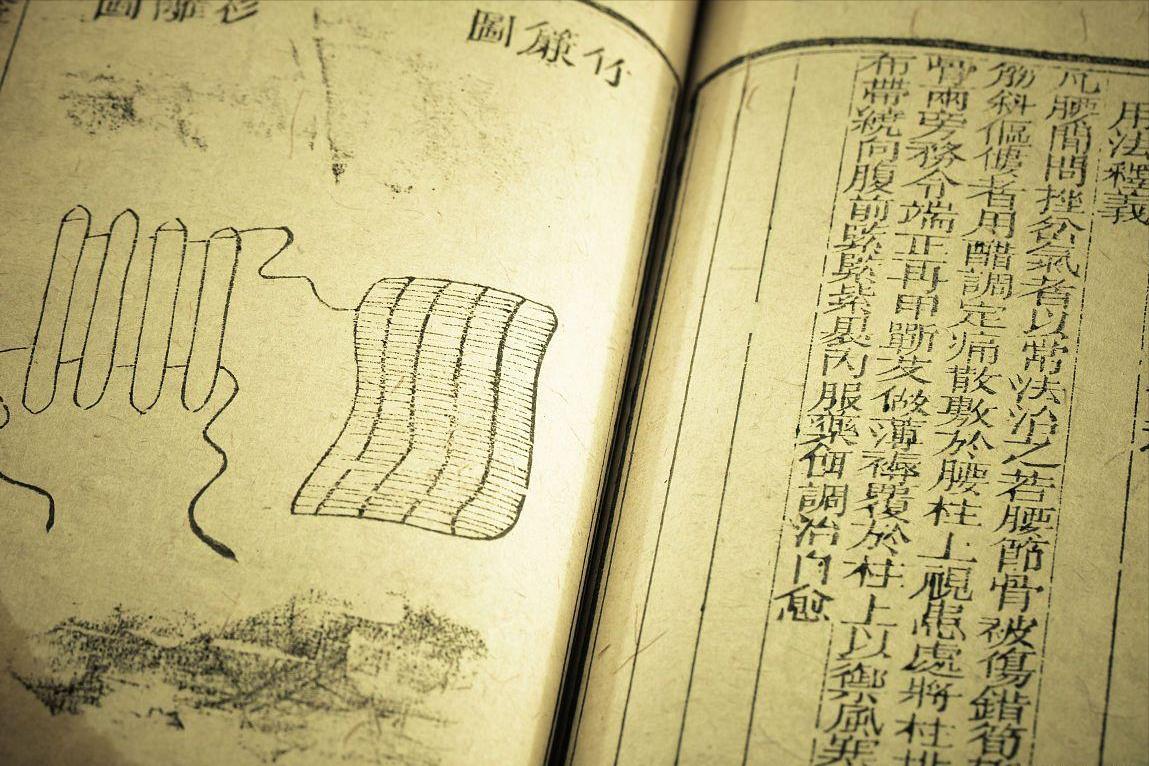 用法釋義
凡腰間閃挫岔氣者以常法治之若腰節骨被傷錯筍
筋斜傴僂者用醋調定痛散敷於腰柱上視患處將柱排
骨兩旁務令端正再用蘄艾做薄褥覆於柱上以御風寒
布帶繞向腹前緊緊紮裹內服藥餌調治自愈
竹簾圖
杉籬圖